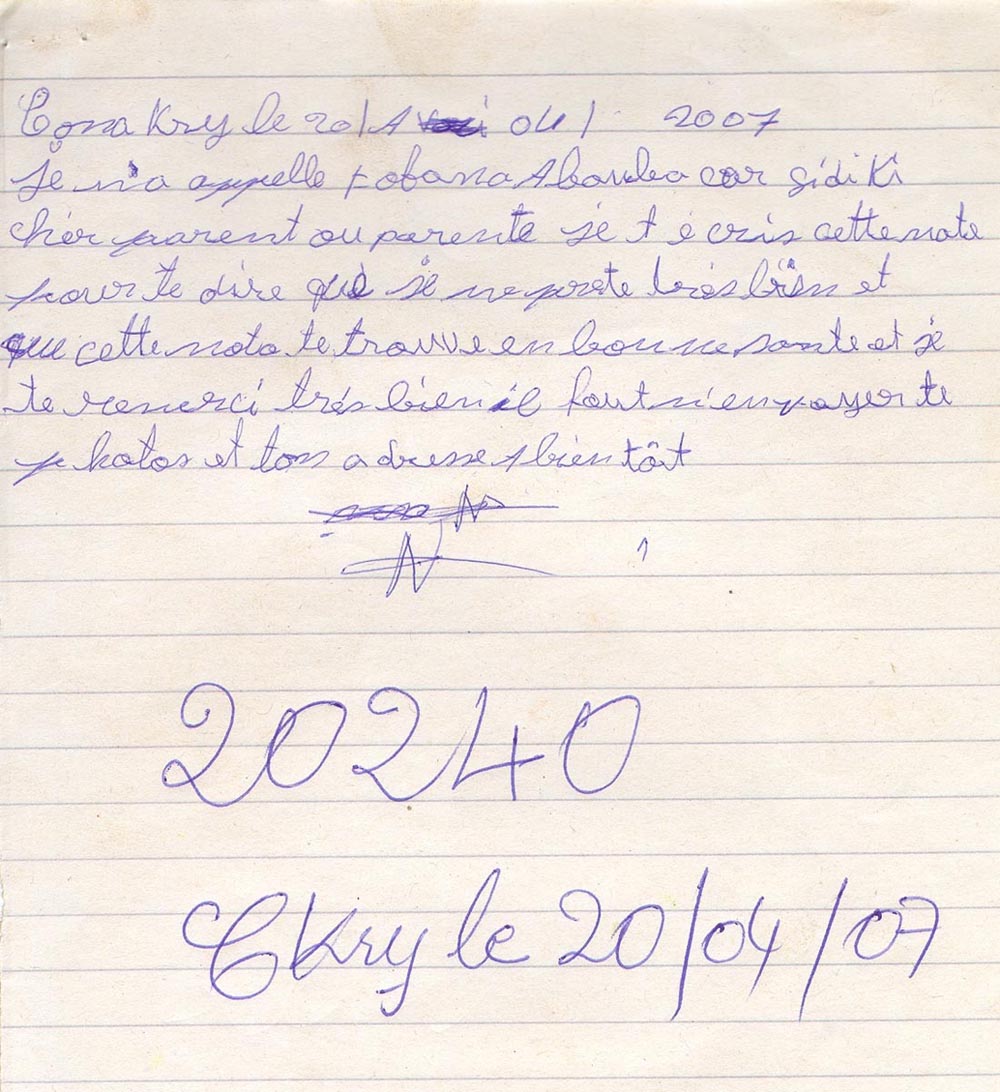 Conakry le 20/A 04/ 2007
Je m'a appelle fofana Abouba car sidiki
cher parent ou parente je t ecris cette note
pour te dire que je me porte très bien et
que cette note te trouve en bonne sante et je
te remerci très bien il faut m'envoyer te
photos et ton adresse A bien tôt
20240
CKry le 20/04/07